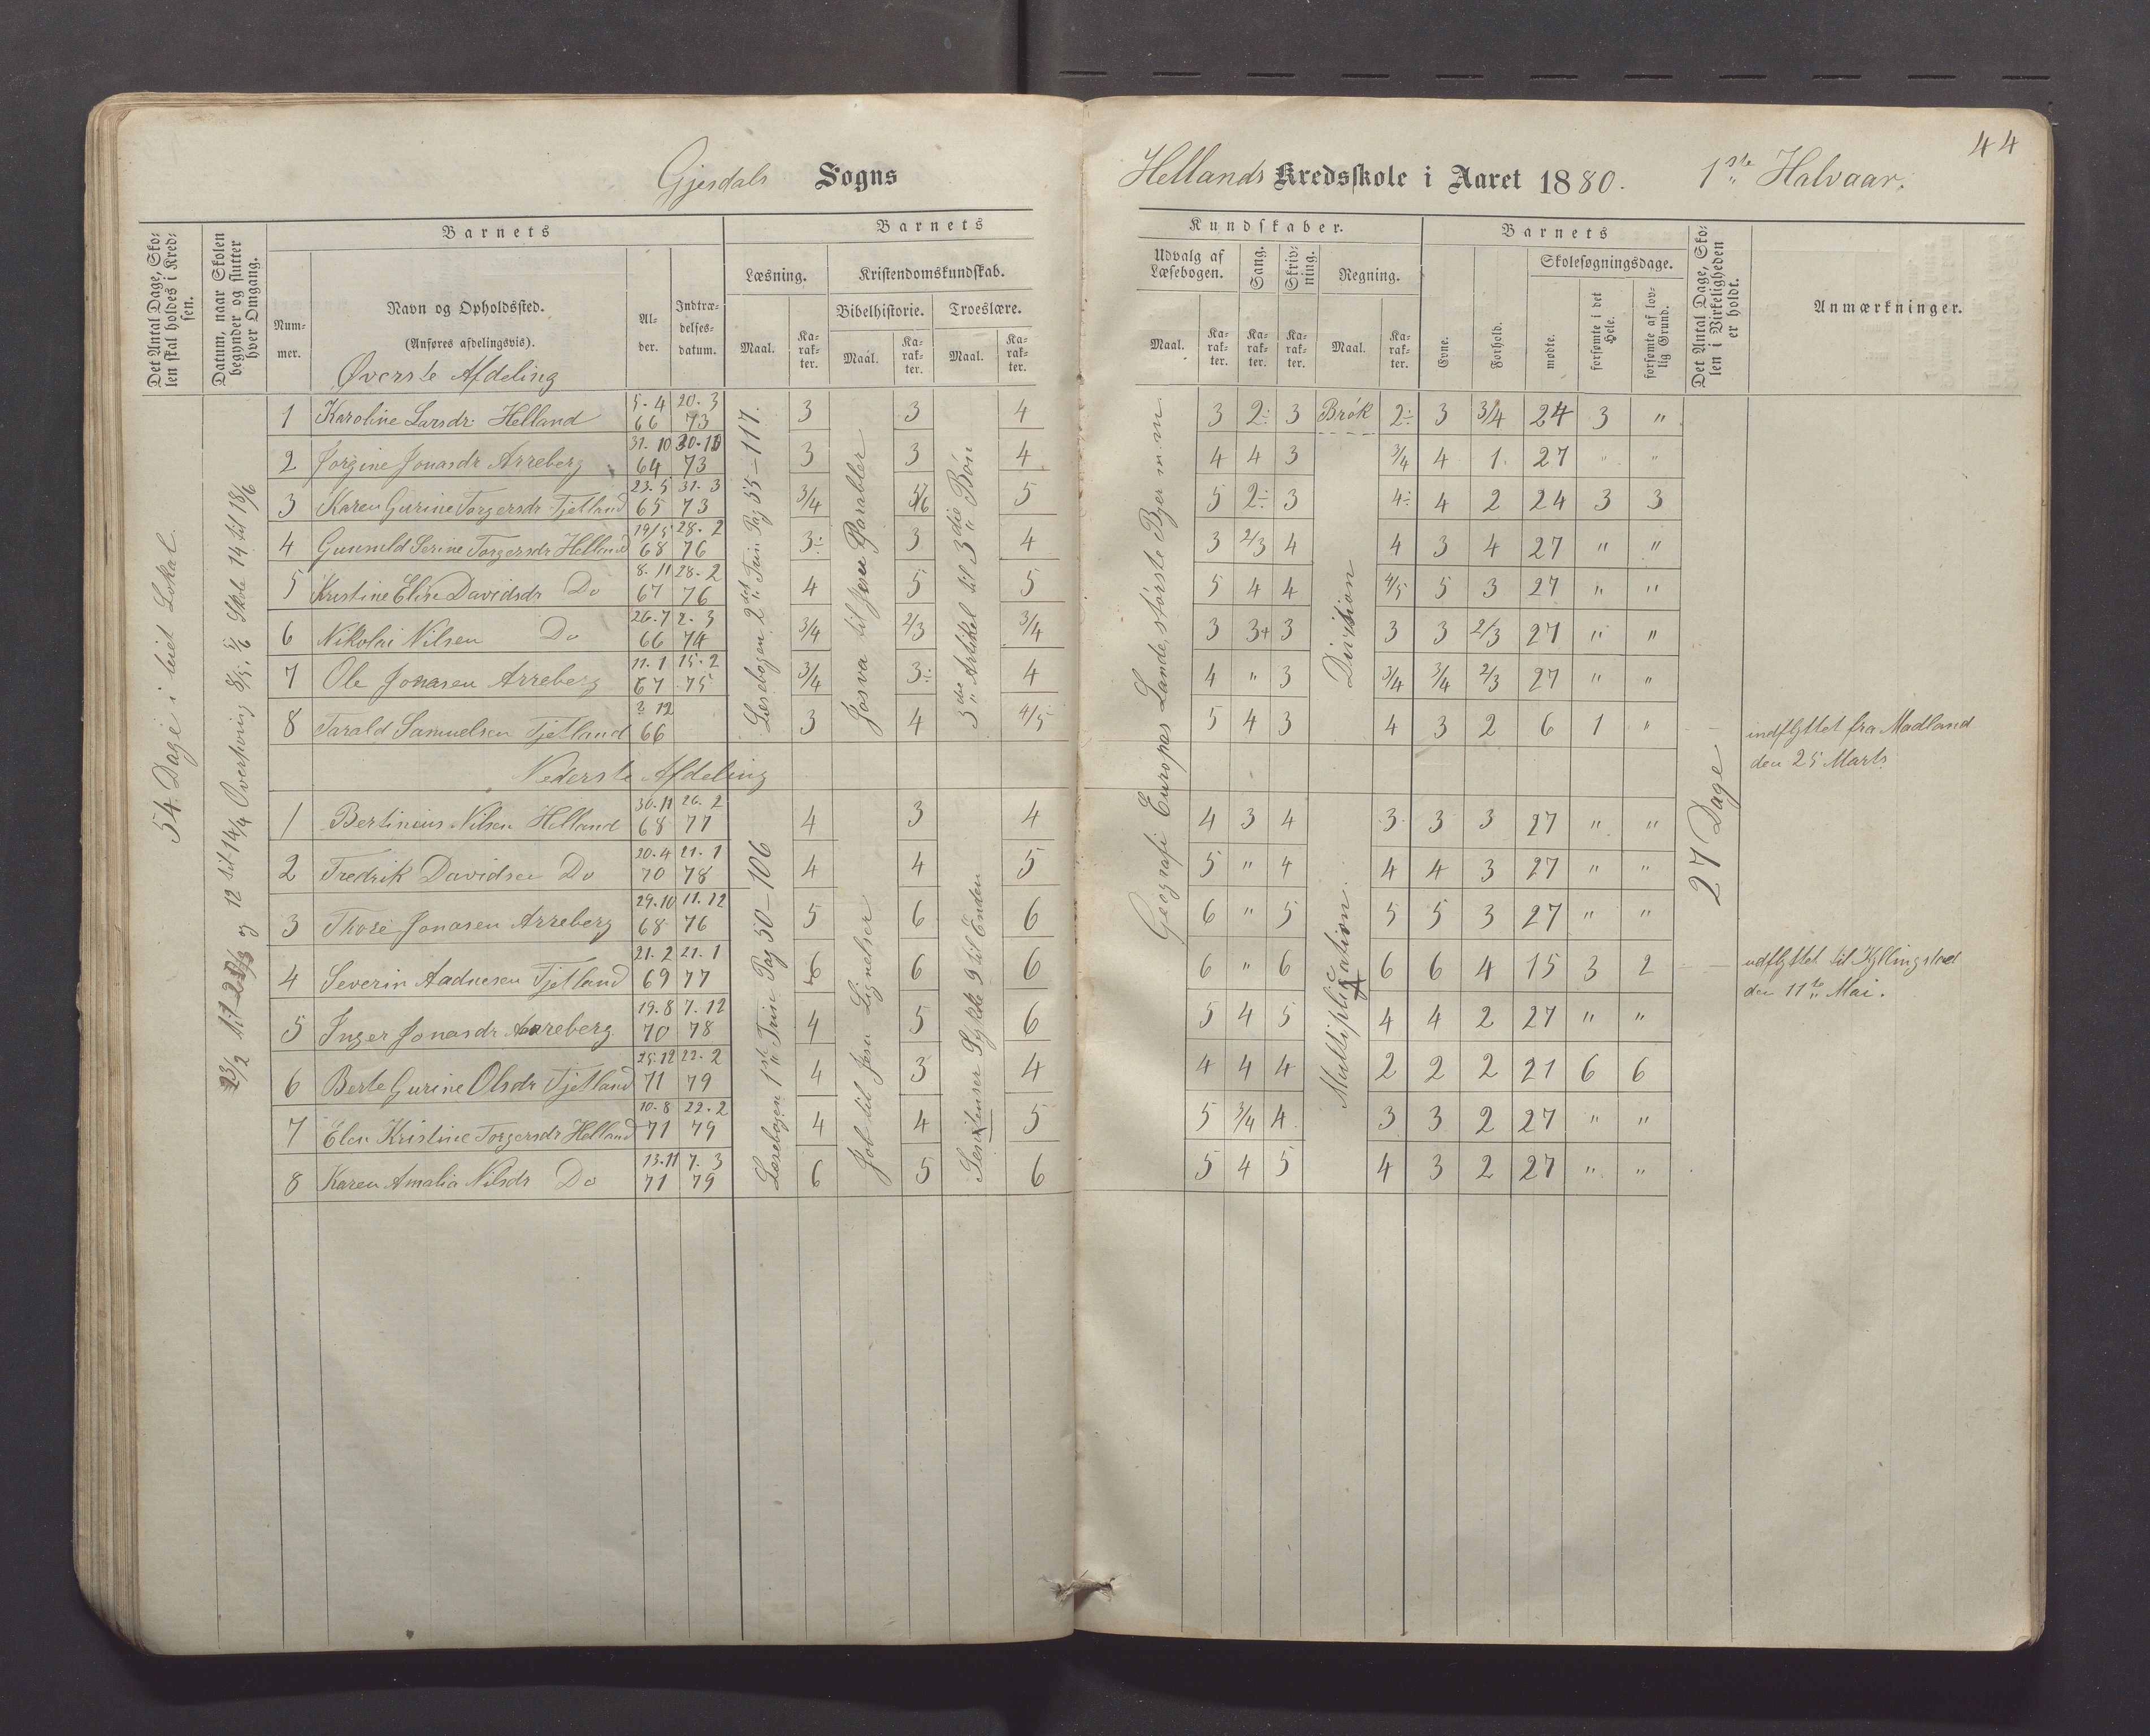 44
Gjesdals Sogns Hellands Kredsskole i Aaret 1880. 1ste Halvaar.
Det Antal Dage, Sko-
len skal holdes i Kred-
sen.
Datum, naar Skolen
begynder og slutter
hver Omgang.
Barnets
Num-
mer.
Navn og Opholdssted.
(Anføres afdelingsvis).
Al-
der.
Indtræ-
delses-
datum.
Barnets
Læsning.
Maal.
Ka-
rak-
ter.
Kristendomskundskab.
Bibelhistorie.
Maal.
Ka-
rak-
ter.
Troeslære.
Maal.
Ka-
rak-
ter.
Kundskaber.
Udvalg af
Læsebogen.
Maal.
Ka-
rak-
ter.
Sang.
Ka-
rak-
ter.
Skriv-
ning.
Ka-
rak-
ter.
Regning.
Maal.
Ka-
rak-
ter.
Barnets
Evne.
Forhold.
Skolesøgningsdage.
mødte.
forsømte i det
Hele.
forsømte af lov-
lig Grund.
Det Antal Dage, Sko-
len i Virkeligheden
er holdt.
Anmærkninger.
54 Dage i leiet Lokal.
12 til 14/4 Overhøring 8/5 Skole 14 til 18/6
Øverste Afdeling
Læsebogen 2det Trin Pag 55-117.
Josva til Jesu Parabler
3die Artikel til 3die Bøn
Geografi Europas Lande, største Byer m.m.
Division
27 Dage
1 Karoline Larsdr. Helland 5.4 66 20.3 73 3 3 4 3 2÷ 3 Brøk 2÷ 3 3/4 24 3 "
2 Jorgine Jonasdr Arreberg 31.10 64 30.11 73 3 3 4 4 4 3 3/4 4 1 27 " "
3 Karen Gurine Torgersdr Tjetland 23.5 65 31.3 73 3/4 5/6 5 5 2÷ 3 4÷ 4 2 24 3 3
4 Gunhild Serine Torgersdr Helland 19/5 68 28.2 76 3÷ 3 4 3 2/3 4 4 3 4 27 " "
5 Kristine Elise Davidsdr Do 8.11 67 28.2 76 4 5 5 5 4 4 4/5 5 3 27 " "
6 Nikolai Nilsen Do 26.7 66 2.3 74 3/4 2/3 3/4 3 3+ 3 3 3 2/3 27 " "
7 Ole Jonasen Arreberg 11.1 67 15.2 75 3/4 3÷ 4 4 " 3 3/4 3/4 2/3 27 " "
8 Tarald Samuelsen Tjetland 3 12 66 3 4 4/5 5 4 3 4 3 2 6 1 " indflyttet fra Madland
den 25 Marts
Nederste Afdeling
Læsebogen 1ste Trin Pag 50-106
Job til Jesu Lignelser
Sentenser Stykke 9 til Enden
Multiplication.
1 Bertineus Nilsen Helland 30.11 68 26.2 77 4 3 4 4 3 4 3 3 3 27 " "
2 Fredrik Davidsen Do 20.4 70 21.1 78 4 4 5 5 " 4 4 4 3 27 " "
3 Thore Jonasen Arreberg 29.10 68 11.12 76 5 6 6 6 " 5 5 5 3 27 " "
4 Severin Aadnesen Tjetland 21.2 69 21.1 77 6 6 6 6 " 6 6 6 4 15 3 2 udflyttet til Kyllingstad
den 11te Mai.
5 Inger Jonasdr Arreberg 19.8 70 7.12 78 4 5 6 5 4 5 4 4 2 27 " "
6 Berte Gurine Olsdr Tjetland 25.12 71 22.2 79 4 3 4 4 4 4 2 2 2 21 6 6
7 Elen Kristine Torgersdr Helland 10.8 71 22.2 79 4 4 5 5 3/4 4 3 3 2 27 " "
8 Karen Amalia Nilsdr Do 13.11 71 7.3 79 6 5 6 5 4 5 4 3 2 27 " "